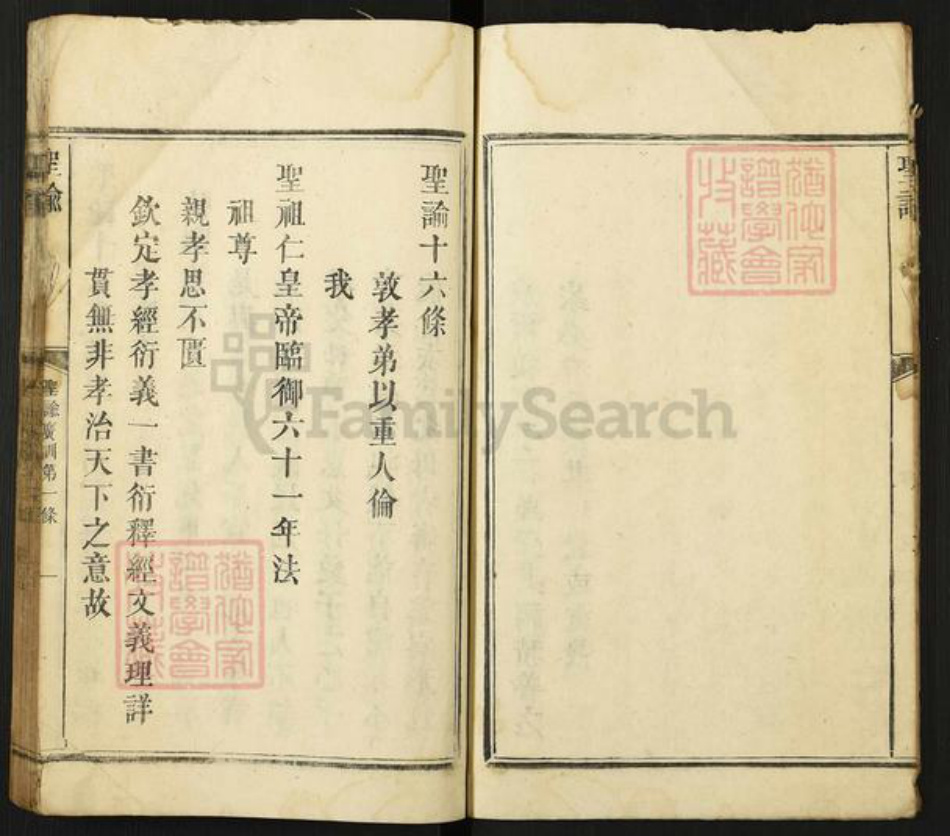 聖諭
聖諭十六條
敦孝弟以重人倫
我
聖祖仁皇帝臨御六十一年法
祖尊
親孝思不匱
欽定孝經衍義一書衍釋經文義理詳
貫無非孝治天下之意故
聖諭
聖諭廣訓第一條
一
譜學會
收藏
譜學會
收藏
FamilySearch